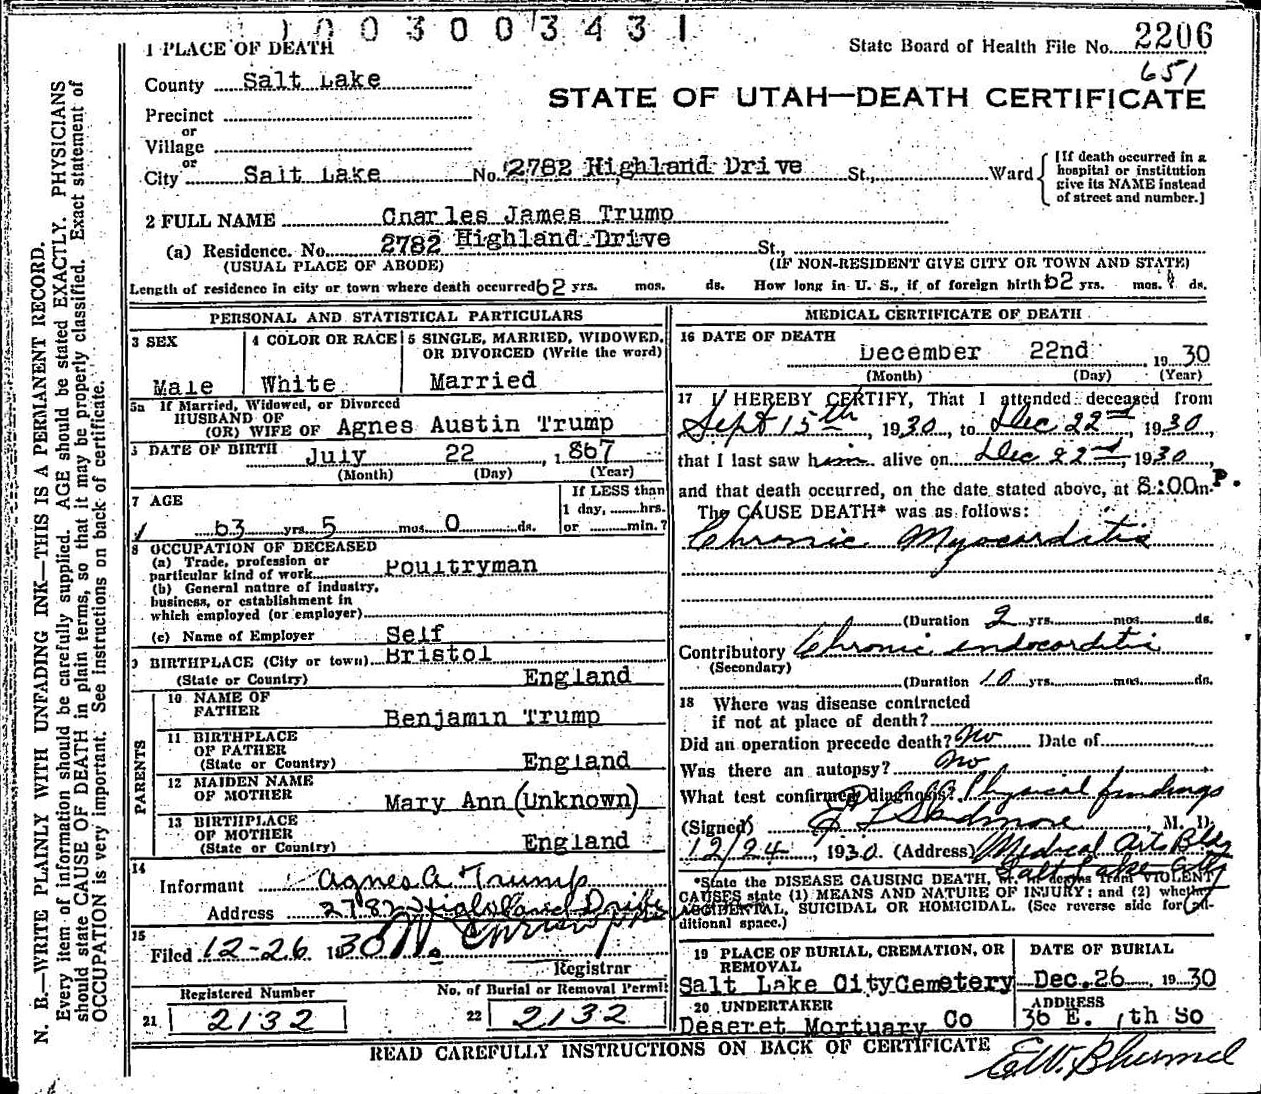 1003003431
1 PLACE OF DEATH
State Board of Health File No. 2206
651
County Salt Lake
STATE OF UTAH—DEATH CERTIFICATE
Precinct
or
Village
or
City Salt Lake No. 2782 Highland Drive St., Ward
[If death occurred in a
hospital or institution
give its NAME instead
of street and number.]
2 FULL NAME Charles James Trump
(a) Residence. No. 2782 Highland Drive St.,
(USUAL PLACE OF ABODE) (IF NON-RESIDENT GIVE CITY OR TOWN AND STATE)
Length of residence in city or town where death occurred 62 yrs. mos. ds. How long in U. S., if of foreign birth 62 yrs. mos. ds.
PERSONAL AND STATISTICAL PARTICULARS
3 SEX
Male
4 COLOR OR RACE
White
5 SINGLE, MARRIED, WIDOWED,
OR DIVORCED (Write the word)
Married
5a If Married, Widowed, or Divorced
HUSBAND OF
(OR) WIFE OF Agnes Austin Trump
DATE OF BIRTH July 22, 1867
(Month) (Day) (Year)
7 AGE
63 yrs. 5 mos. 0 ds.
If LESS than
1 day, hrs.
or min.?
8 OCCUPATION OF DECEASED
(a) Trade, profession or
particular kind of work Poultryman
(b) General nature of industry,
business, or establishment in
which employed (or employer)
(c) Name of Employer Self
9 BIRTHPLACE (City or town) Bristol
(State or Country) England
PARENTS
10 NAME OF
FATHER Benjamin Trump
11 BIRTHPLACE
OF FATHER
(State or Country) England
12 MAIDEN NAME
OF MOTHER Mary Ann (Unknown)
13 BIRTHPLACE
OF MOTHER
(State or Country) England
14
Informant Agnes A Trump
Address 2782 Highland Drive
15
Filed 12-26 1930
Registrar
Registered Number
21 2132
No. of Burial or Removal Permit
22 2132
MEDICAL CERTIFICATE OF DEATH
16 DATE OF DEATH
December 22nd 1930
(Month) (Day) (Year)
17 I HEREBY CERTIFY, That I attended deceased from
Sept 15th, 1930, to Dec 22nd, 1930,
that I last saw him alive on Dec 22nd, 1930,
and that death occurred, on the date stated above, at 8:00 P.m.
The CAUSE DEATH* was as follows:
Chronic Myocarditis
(Duration 2 yrs. mos. ds.
Contributory Chronic endocarditis
(Secondary)
(Duration 10 yrs. mos. ds.
18 Where was disease contracted
if not at place of death?
Did an operation precede death? No Date of
Was there an autopsy? No
What test confirmed diagnosis? Physical findings
(Signed) Skidmore, M. D.
12/24, 1930. (Address) Medical Arts Bldg
Salt Lake City
*State the DISEASE CAUSING DEATH, or deaths from VIOLENT
CAUSES state (1) MEANS AND NATURE OF INJURY: and (2) whether
ACCIDENTAL, SUICIDAL OR HOMICIDAL. (See reverse side for ad-
ditional space.)
19 PLACE OF BURIAL, CREMATION, OR
REMOVAL
Salt Lake City Cemetery
DATE OF BURIAL
Dec. 26 1930
20 UNDERTAKER
Deseret Mortuary Co
ADDRESS
36 E. 7th So
READ CAREFULLY INSTRUCTIONS ON BACK OF CERTIFICATE
N. B.—WRITE PLAINLY WITH UNFADING INK—THIS IS A PERMANENT RECORD.
Every item of information should be carefully supplied. AGE should be stated EXACTLY. PHYSICIANS
should state CAUSE OF DEATH in plain terms, so that it may be properly classified. Exact statement of
OCCUPATION is very important. See instructions on back of certificate.